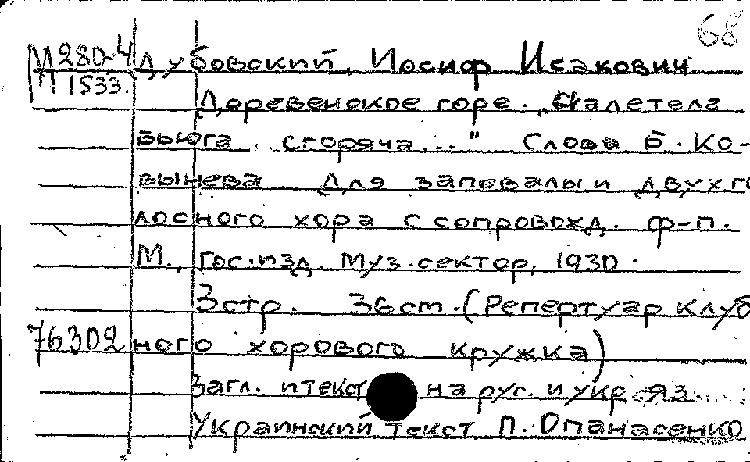 68
М 280-4 Дубовский, Иосиф Исакович
П 1533
Деревенское горе. „Налетела
вьюга сгоряча..." Слова Б. Ко-
вынева Для запевалы и двухго
лосного хора с сопровожд. ф-п.
М., Гос.изд. Муз.сектор, 1930.
3стр. 36ст. (Репертуар клуб
76302 ного хорового кружка)
Загл. и текст на рус. и укр яз.
Украинский текст П. Опанасенко